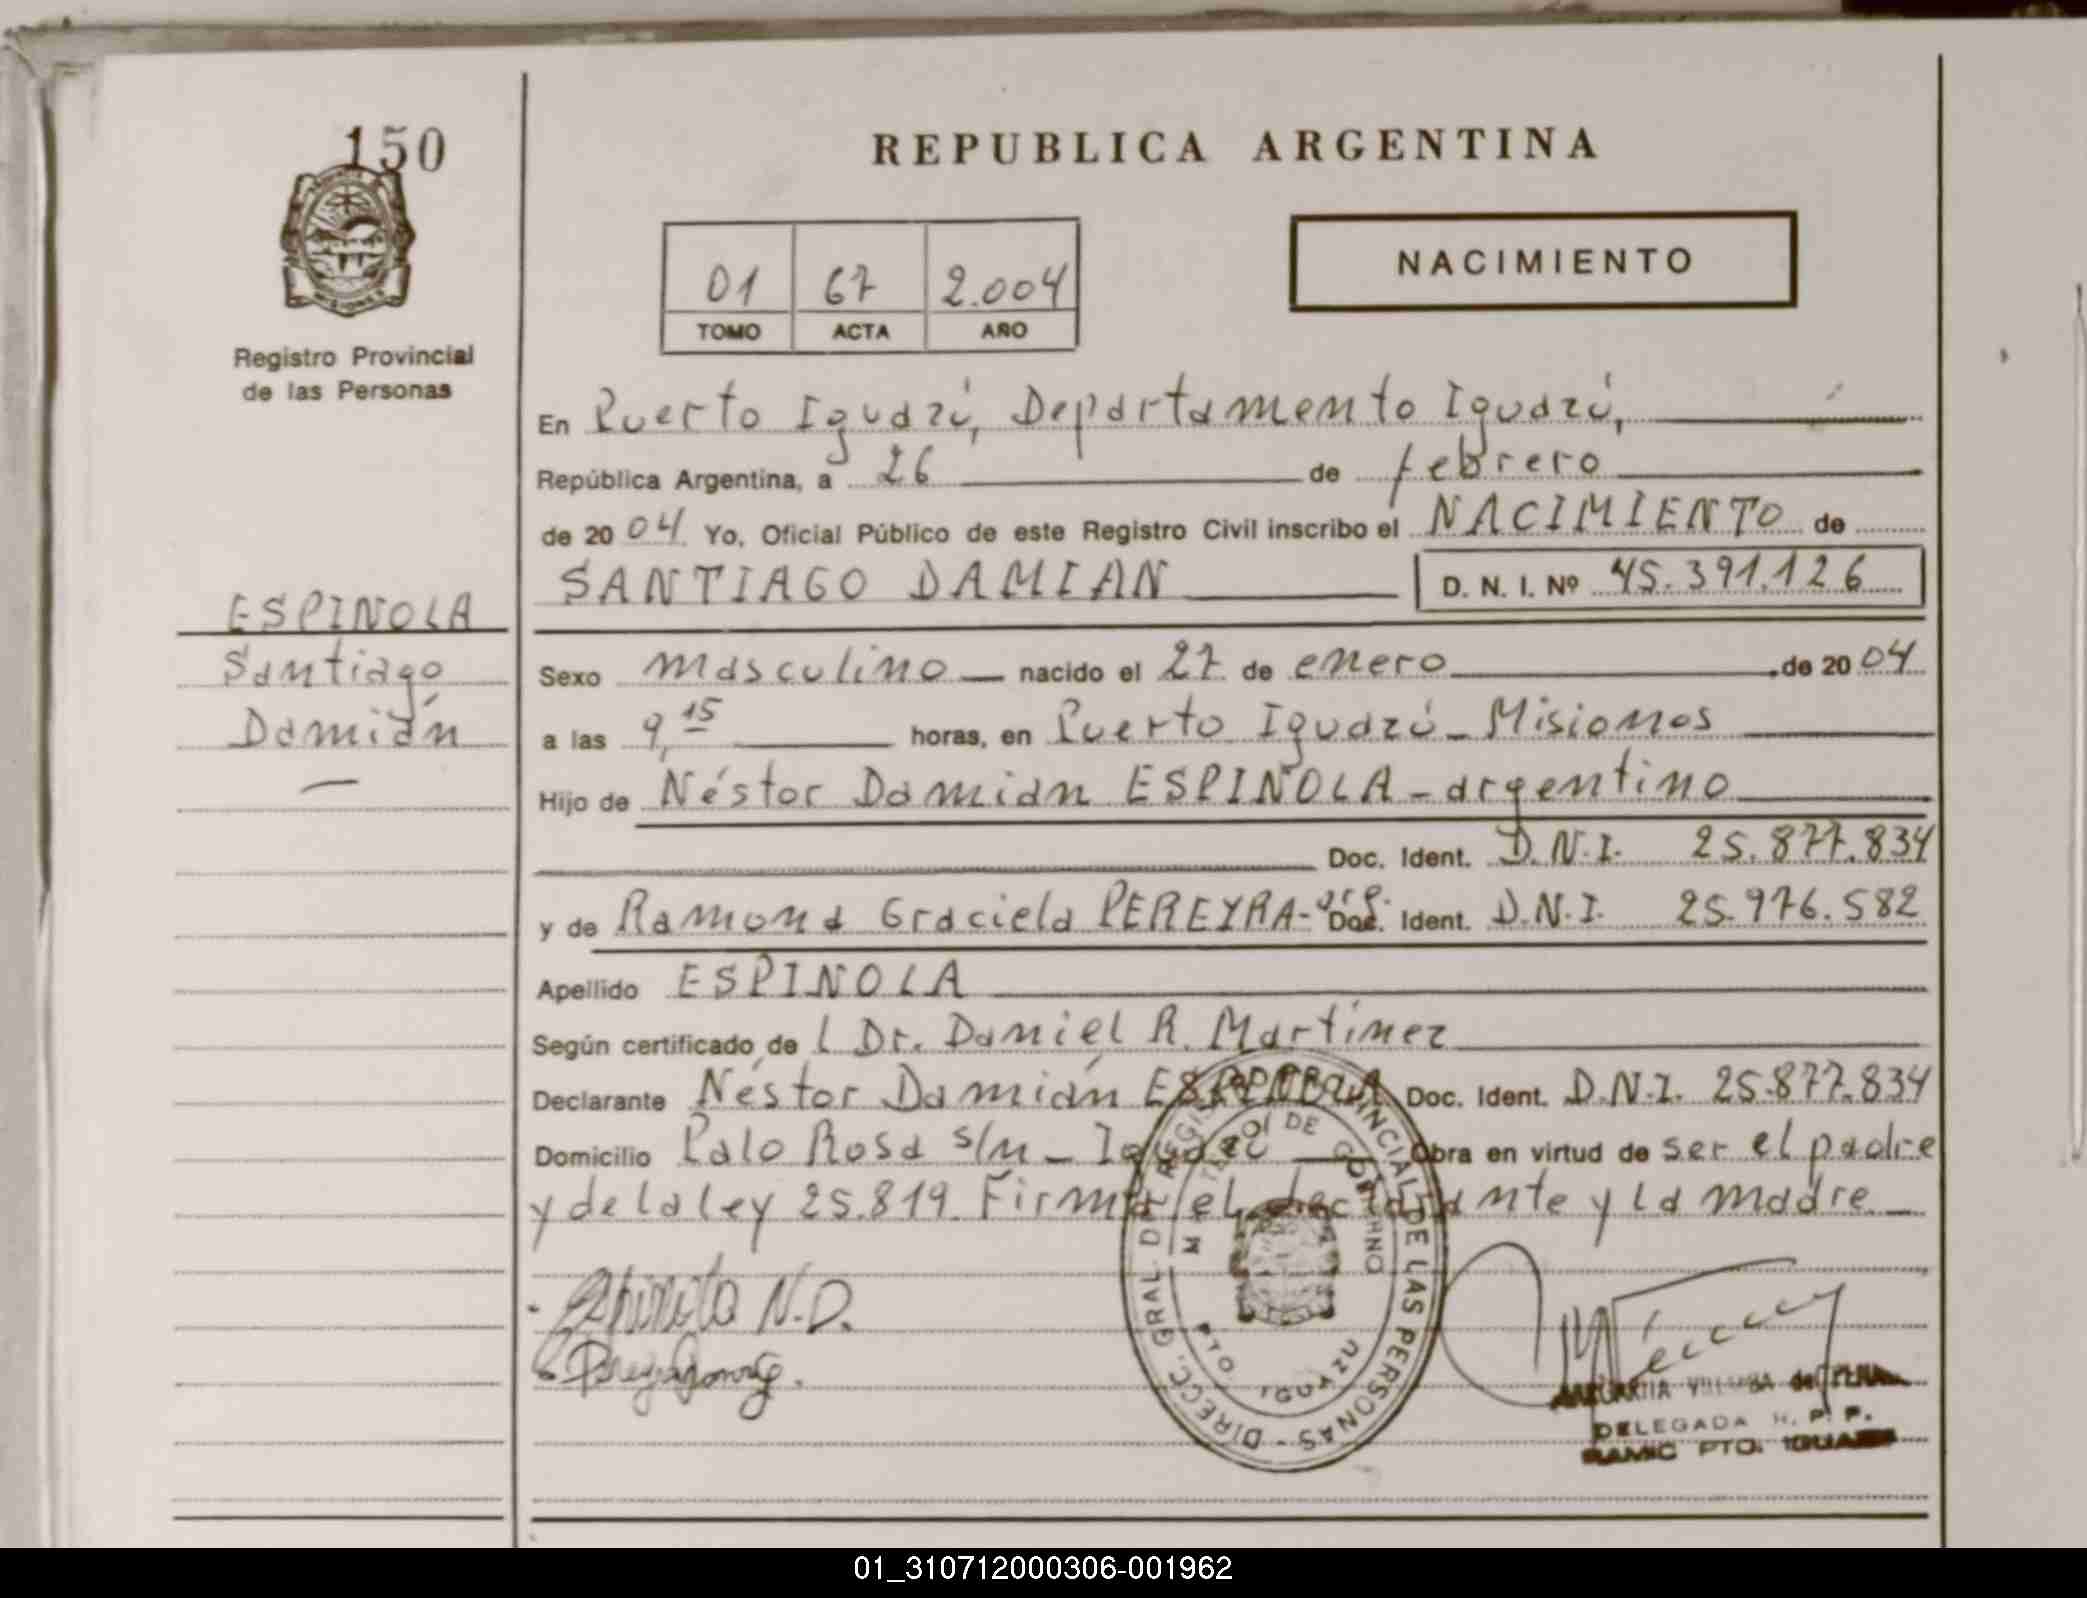 150
REPUBLICA ARGENTINA
NACIMIENTO
01 67 2.004
TOMO ACTA AÑO
Registro Provincial
de las Personas
En Puerto Iguazú, Departamento Iguazú,
República Argentina, a 26 de febrero
de 2004 Yo, Oficial Público de este Registro Civil inscribo el NACIMIENTO de
SANTIAGO DAMIAN D. N. I. Nº 45.391.126
ESPINOLA
Santiago
Damián
Sexo masculino nacido el 27 de enero de 2004
a las 9,15 horas, en Puerto Iguazú - Misiones
Hijo de Néstor Damián ESPINOLA - argentino
Doc. Ident. D.N.I. 25.877.834
y de Ramona Graciela PEREYRA - arg. Doc. Ident. D.N.I. 25.976.582
Apellido ESPINOLA
Según certificado de l Dr. Daniel R. Martínez
Declarante Néstor Damián ESPINOLA Doc. Ident. D.N.I. 25.877.834
Domicilio Palo Rosa s/n - Iguazú Obra en virtud de ser el padre
y de la ley 25.819. Firma el declarante y la madre.
Espinola N.D.
DIRECC. GRAL. DEL REGISTRO PROVINCIAL DE LAS PERSONAS
DE GOBIERNO
PTO. IGUAZU
MARGARITA VILLALBA de
DELEGADA R. P. P.
RAMIC PTO. IGUAZU
01_310712000306-001962